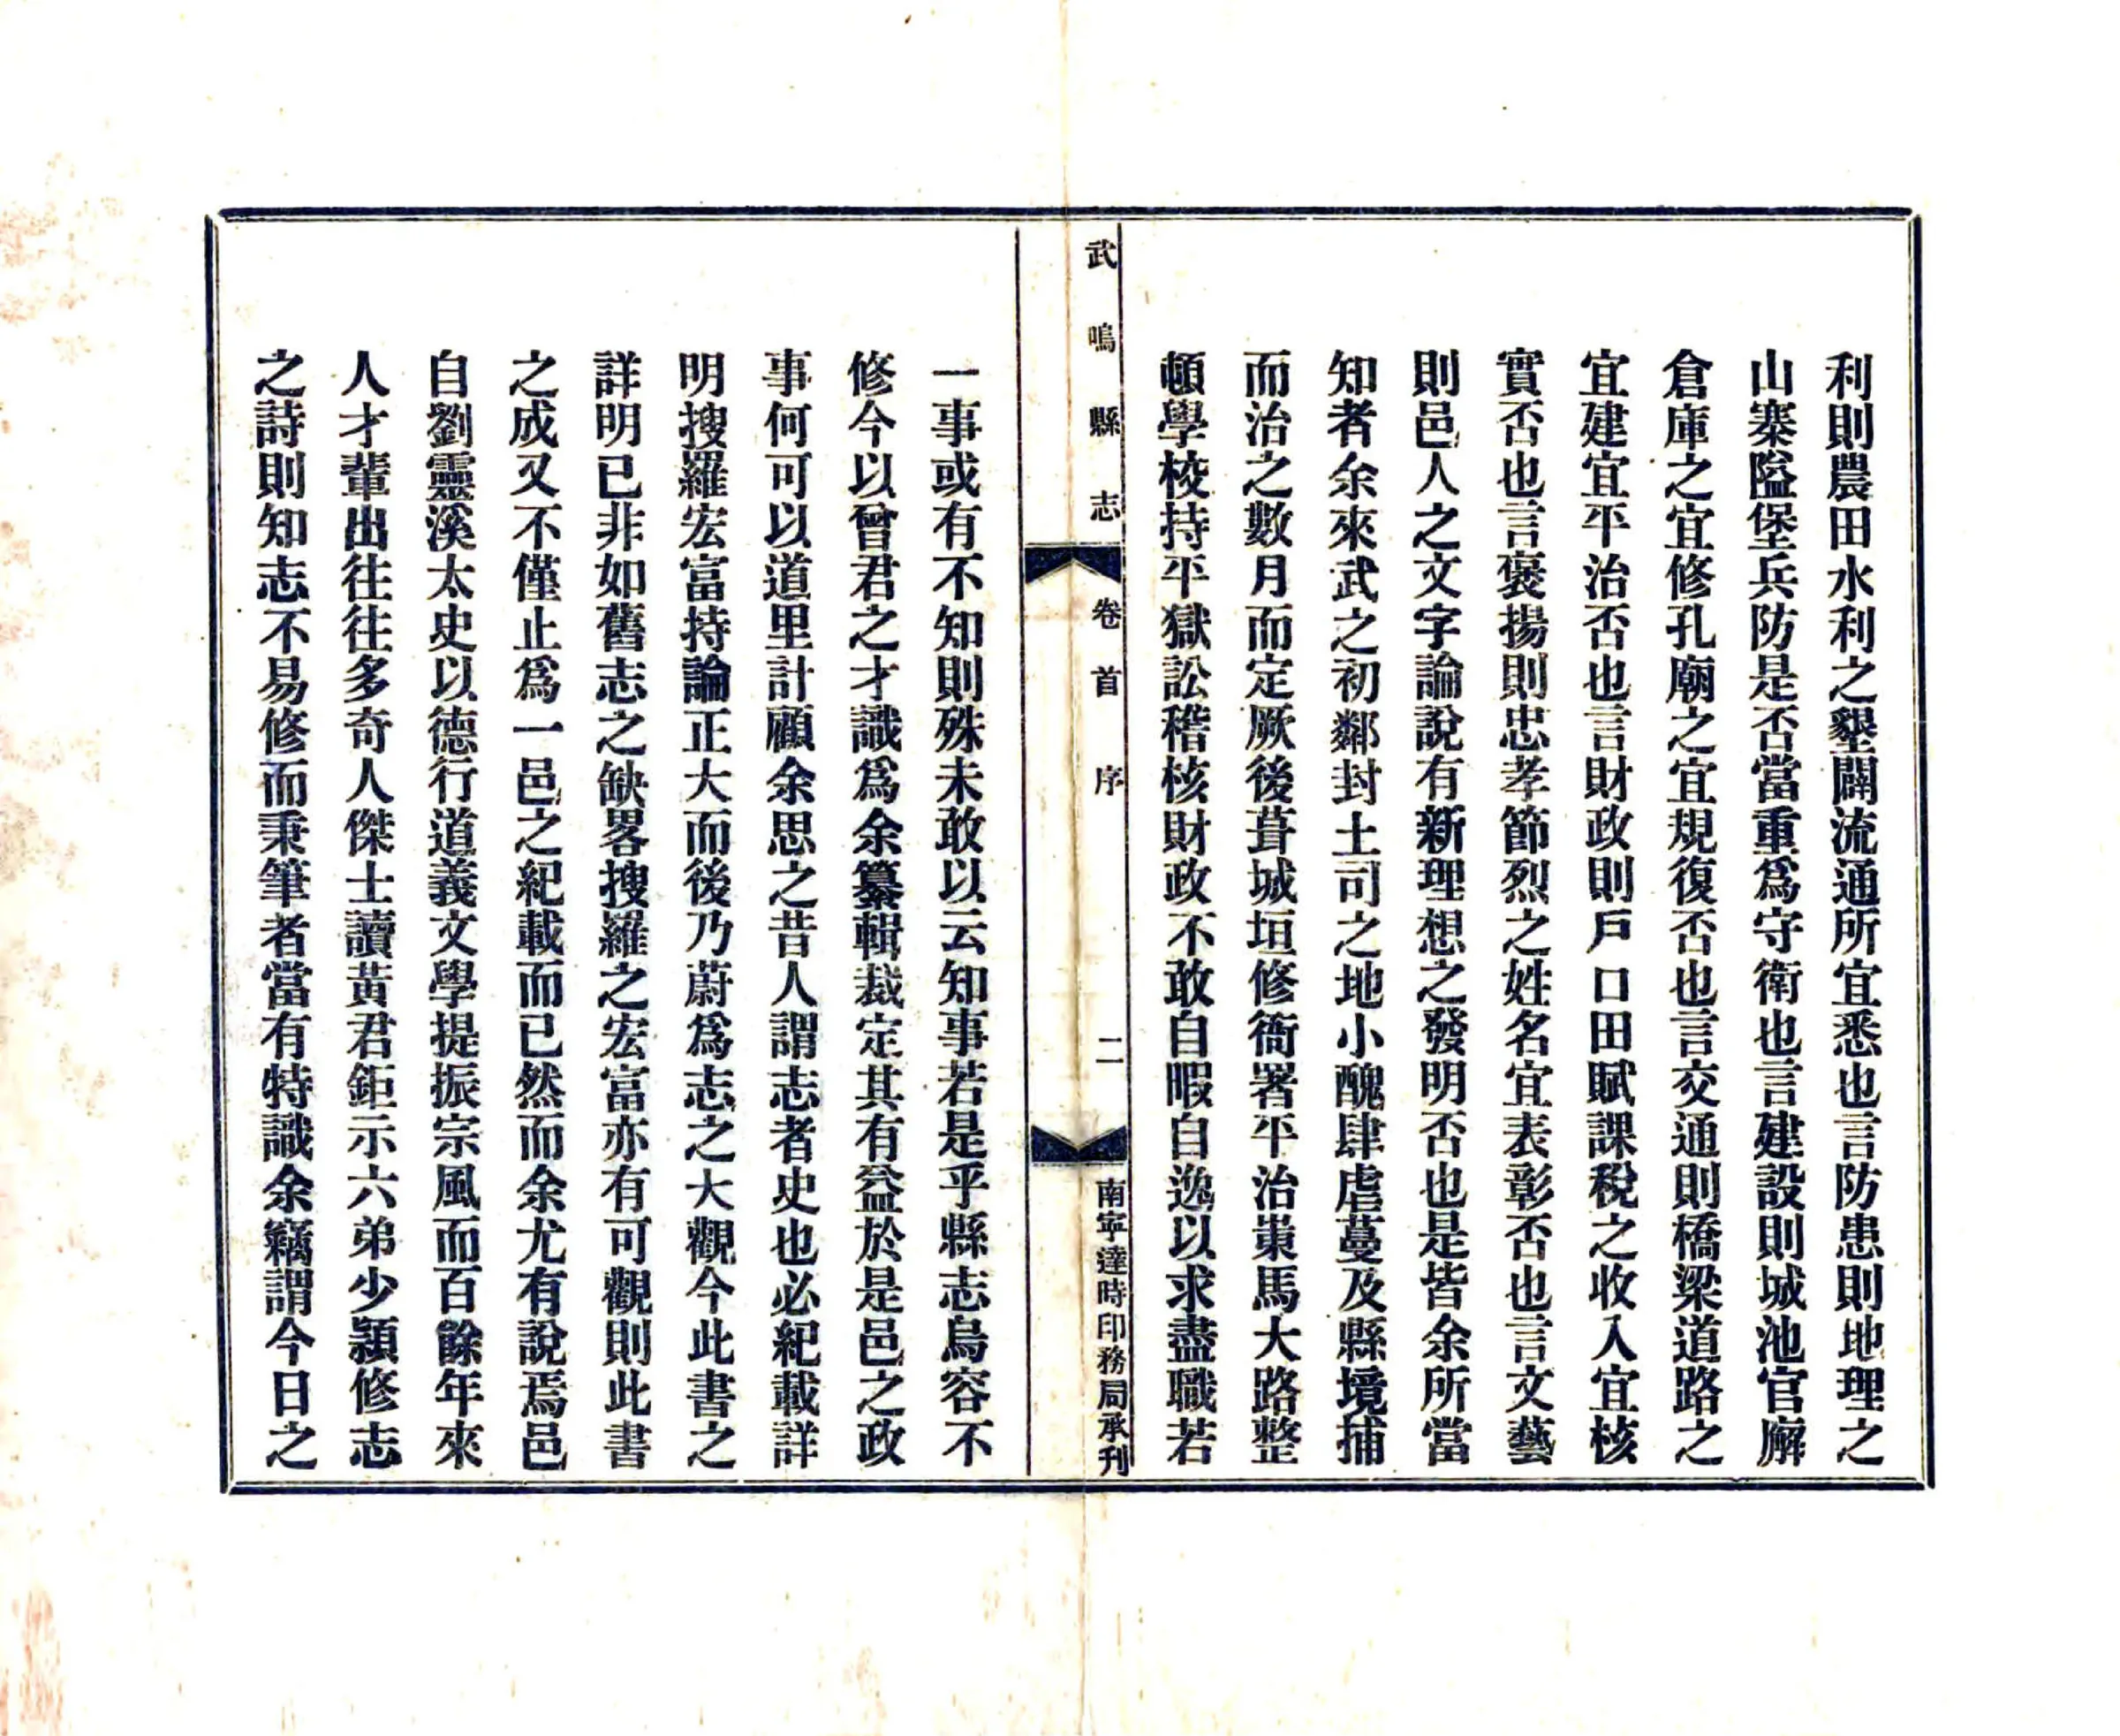 利則農田水利之墾闢流通所宜悉也言防患則地理之
山寨隘堡兵防是否當重爲守衛也言建設則城池官廨
倉庫之宜修孔廟之宜規復否也言交通則橋梁道路之
宜建宜平治否也言財政則戶口田賦課稅之收入宜核
實否也言褒揚則忠孝節烈之姓名宜表彰否也言文藝
則邑人之文字論說有新理想之發明否也是皆余所當
知者余來武之初鄰封土司之地小醜肆虐蔓及縣境捕
而治之數月而定厥後葺城垣修衙署平治東馬大路整
頓學校持平獄訟稽核財政不敢自暇自逸以求盡職若
武鳴縣志
卷首 序
二
南寧達時印務局承刊
一事或有不知則殊未敢以云知事若是乎縣志烏容不
修今以曾君之才識爲余纂輯裁定其有益於是邑之政
事何可以道里計顧余思之昔人謂志者史也必紀載詳
明搜羅宏富持論正大而後乃蔚爲志之大觀今此書之
詳明已非如舊志之缺畧搜羅之宏富亦有可觀則此書
之成又不僅止爲一邑之紀載而已然而余尤有說焉邑
自劉靈溪太史以德行道義文學提振宗風而百餘年來
人才輩出往往多奇人傑士讀黃君鉅示六弟少潁修志
之詩則知志不易修而秉筆者當有特識余竊謂今日之